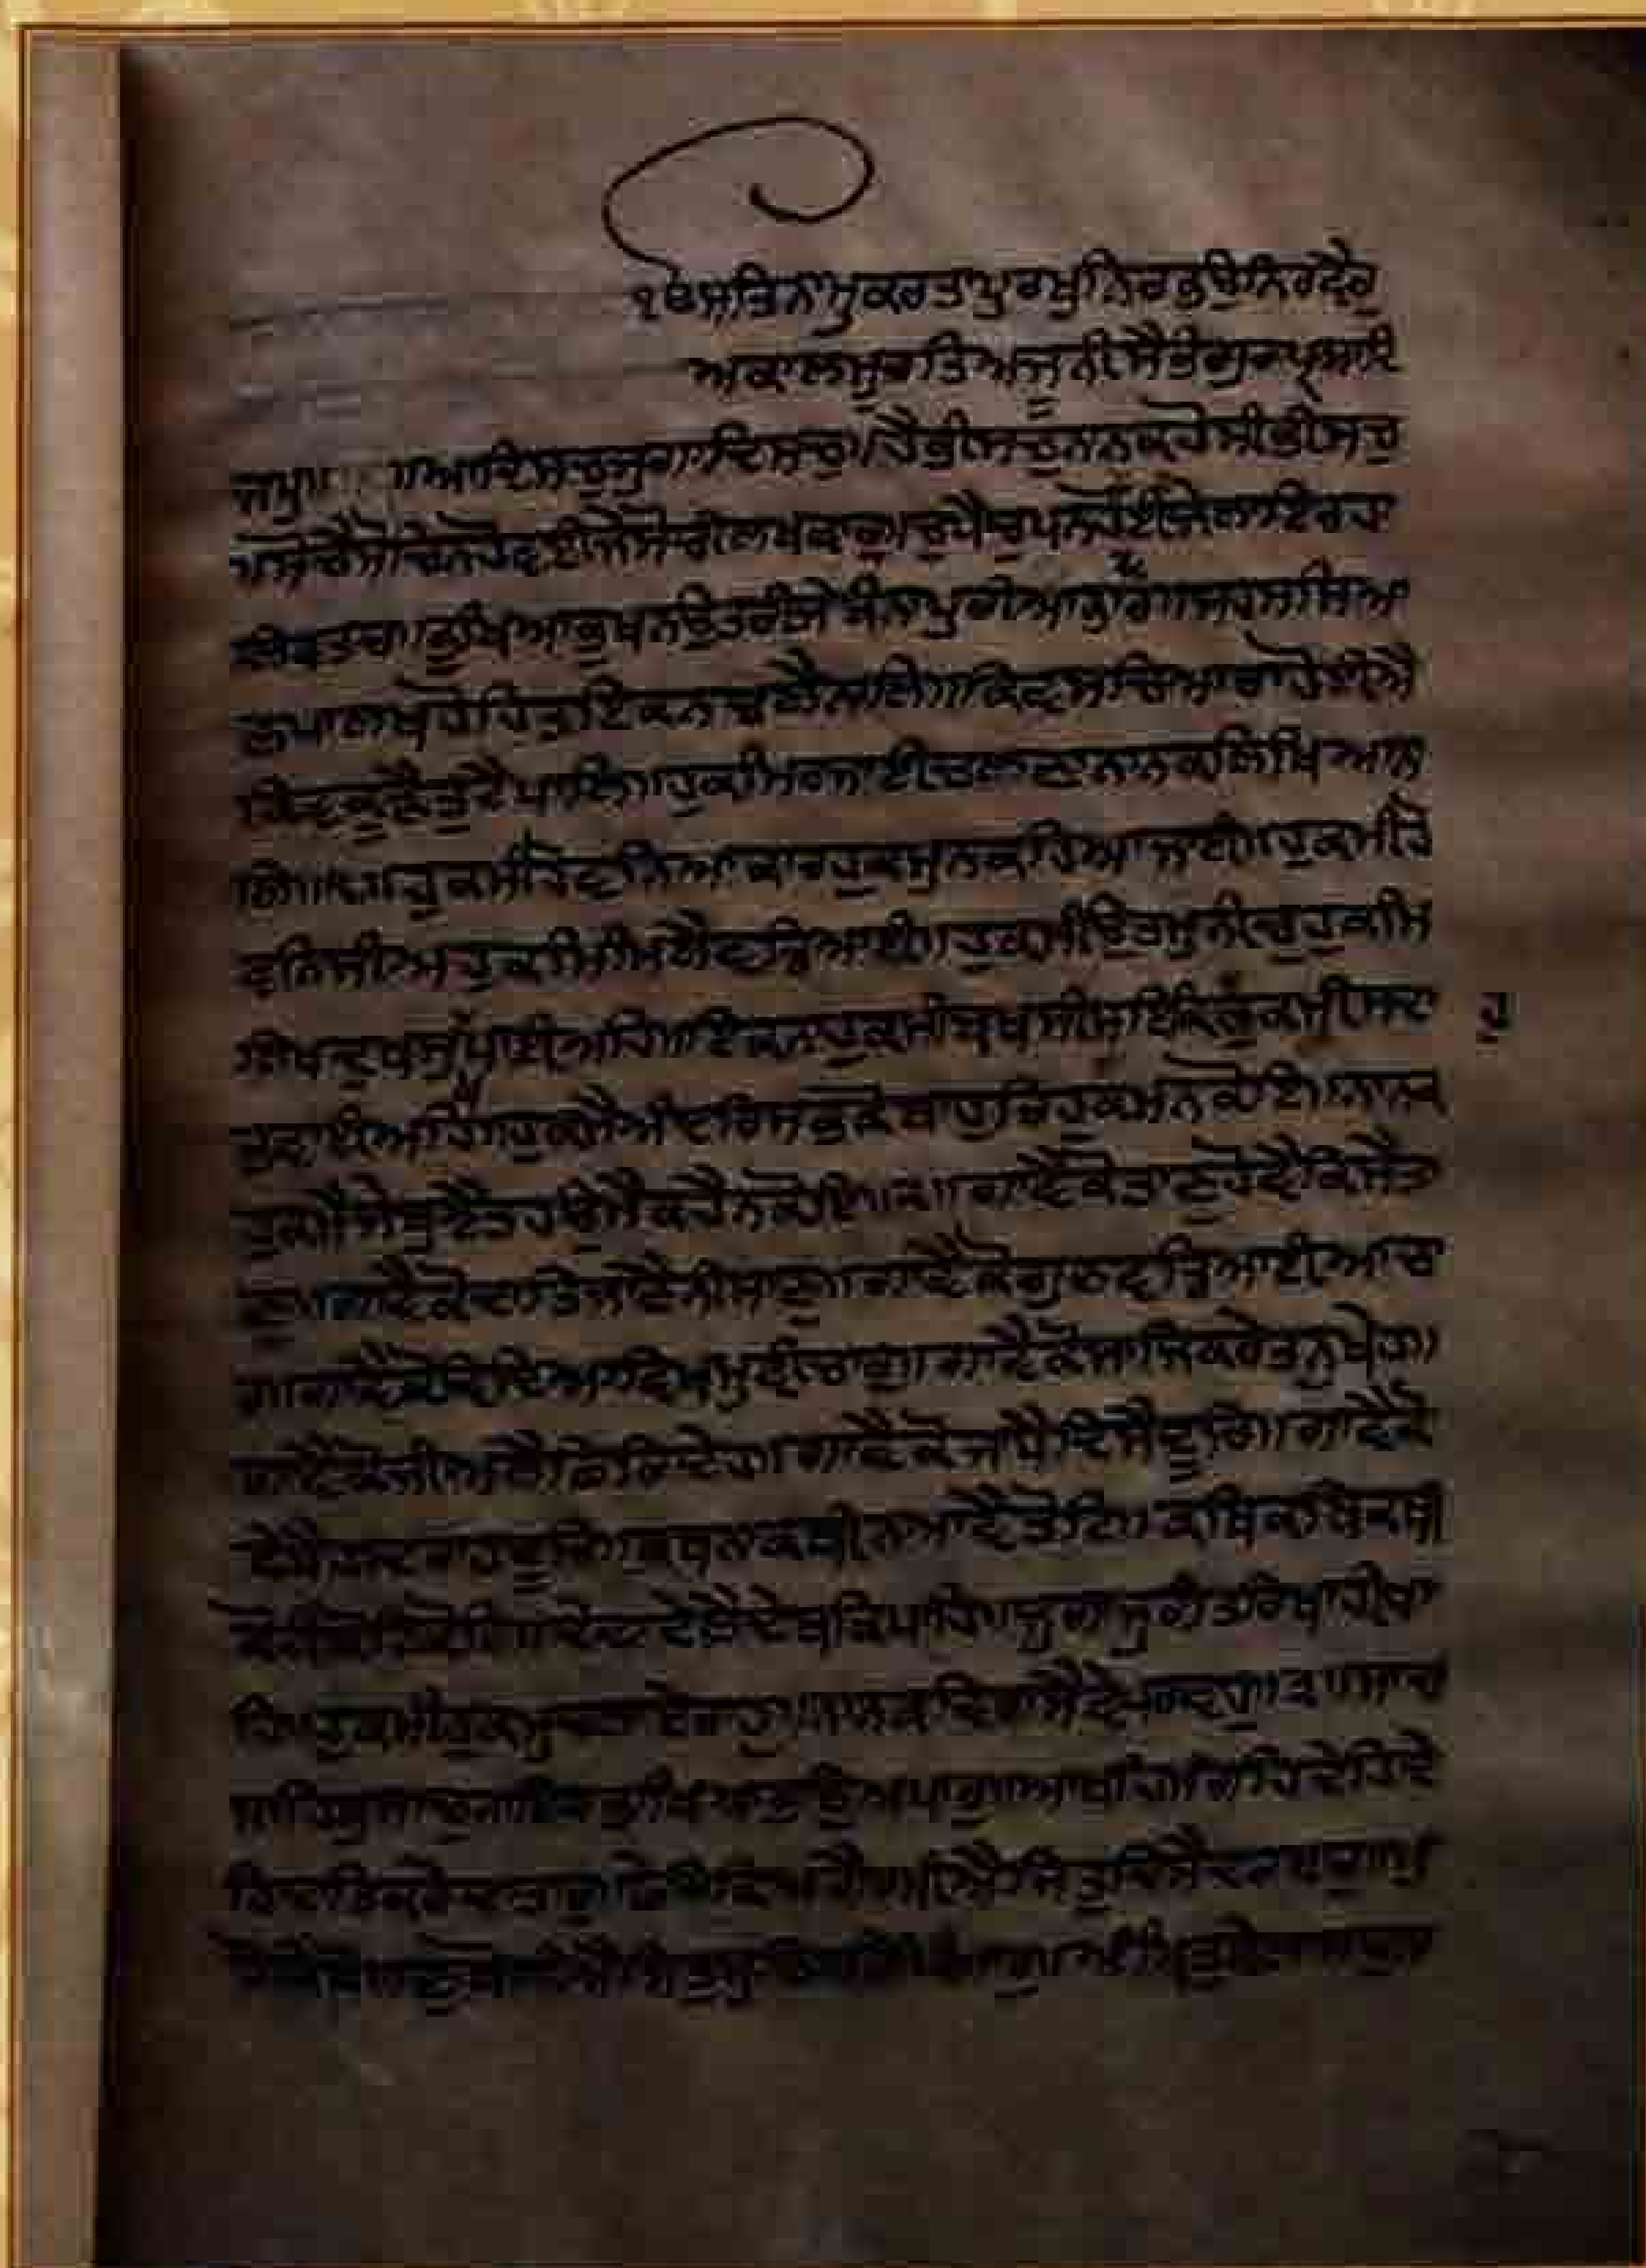 ੴਸਤਿਨਾਮੁਕਰਤਾਪੁਰਖੁਨਿਰਭਉਨਿਰਵੈਰੁ
ਅਕਾਲਮੂਰਤਿਅਜੂਨੀਸੈਭੰਗੁਰਪ੍ਰਸਾਦਿ
ਜਪੁ॥ ॥ਆਦਿਸਚੁਜੁਗਾਦਿਸਚੁ॥ਹੈਭੀਸਚੁਨਾਨਕਹੋਸੀਭੀਸਚੁ
ਸੋਚੈਸੋਚਿਨਹੋਵਈਜੇਸੋਚੀਲਖਵਾਰ॥ਚੁਪੈਚੁਪਨਹੋਵਈਜੇਲਾਇਰਹਾ
ਲਿਵਤਾਰ॥ਭੁਖਿਆਭੁਖਨਉਤਰੀਜੇਬੰਨਾਪੁਰੀਆਭਾਰ॥ਸਹਸਸਿਆ
ਣਪਾਲਖਹੋਹਿਤਇਕਨਚਲੈਨਾਲਿ॥ਕਿਵਸਚਿਆਰਾਹੋਈਐ
ਕਿਵਕੂੜੈਤੁਟੈਪਾਲਿ॥ਹੁਕਮਿਰਜਾਈਚਲਣਾਨਾਨਕਲਿਖਿਆਨਾ
ਲਿ॥੧॥ਹੁਕਮੀਹੋਵਨਿਆਕਾਰਹੁਕਮੁਨਕਹਿਆਜਾਈ॥ਹੁਕਮੀਹੋ
ਵਨਿਜੀਅਹੁਕਮਿਮਿਲੈਵਡਿਆਈ॥ਹੁਕਮੀਉਤਮੁਨੀਚੁਹੁਕਮਿ
ਲਿਖਿਦੁਖਸੁਖਪਾਈਅਹਿ॥ਇਕਨਾਹੁਕਮੀਬਖਸੀਸਇਕਿਹੁਕਮੀਸਦਾ
ਹੁ
ਭਵਾਈਅਹਿ॥ਹੁਕਮੈਅੰਦਰਿਸਭੁਕੋਬਾਹਰਿਹੁਕਮਨਕੋਇ॥ਨਾਨਕ
ਹੁਕਮੈਜੇਬੁਝੈਤਹਉਮੈਕਹੈਨਕੋਇ॥੨॥ਗਾਵੈਕੋਤਾਣੁਹੋਵੈਕਿਸੈਤਾ
ਣੁ॥ਗਾਵੈਕੋਦਾਤਿਜਾਣੈਨੀਸਾਣੁ॥ਗਾਵੈਕੋਗੁਣਵਡਿਆਈਆਚਾ
ਰ॥ਗਾਵੈਕੋਵਿਦਿਆਵਿਖਮੁਵੀਚਾਰੁ॥ਗਾਵੈਕੋਸਾਜਿਕਰੇਤਨੁਖੇਹ॥
ਗਾਵੈਕੋਜੀਅਲੈਫਿਰਿਦੇਹ॥ਗਾਵੈਕੋਜਾਪੈਦਿਸੈਦੂਰਿ॥ਗਾਵੈਕੋ
ਵੇਖੈਹਾਦਰਾਹਦੂਰਿ॥ਕਥਨਾਕਥੀਨਆਵੈਤੋਟਿ॥ਕਥਿਕਥਿਕਥੀ
ਕੋਟੀਕੋਟਿਕੋਟਿ॥ਦੇਦਾਦੇਲੈਦੇਥਕਿਪਾਹਿ॥ਜੁਗਾਜੁਗੰਤਰਿਖਾਹੀਖਾ
ਹਿ॥ਹੁਕਮੀਹੁਕਮੁਚਲਾਏਰਾਹੁ॥ਨਾਨਕਵਿਗਸੈਵੇਪਰਵਾਹੁ॥੩॥ਸਾਚਾ
ਸਾਹਿਬੁਸਾਚੁਨਾਇਭਾਖਿਆਭਾਉਅਪਾਰੁ॥ਆਖਹਿਮੰਗਹਿਦੇਹਿਦੇ